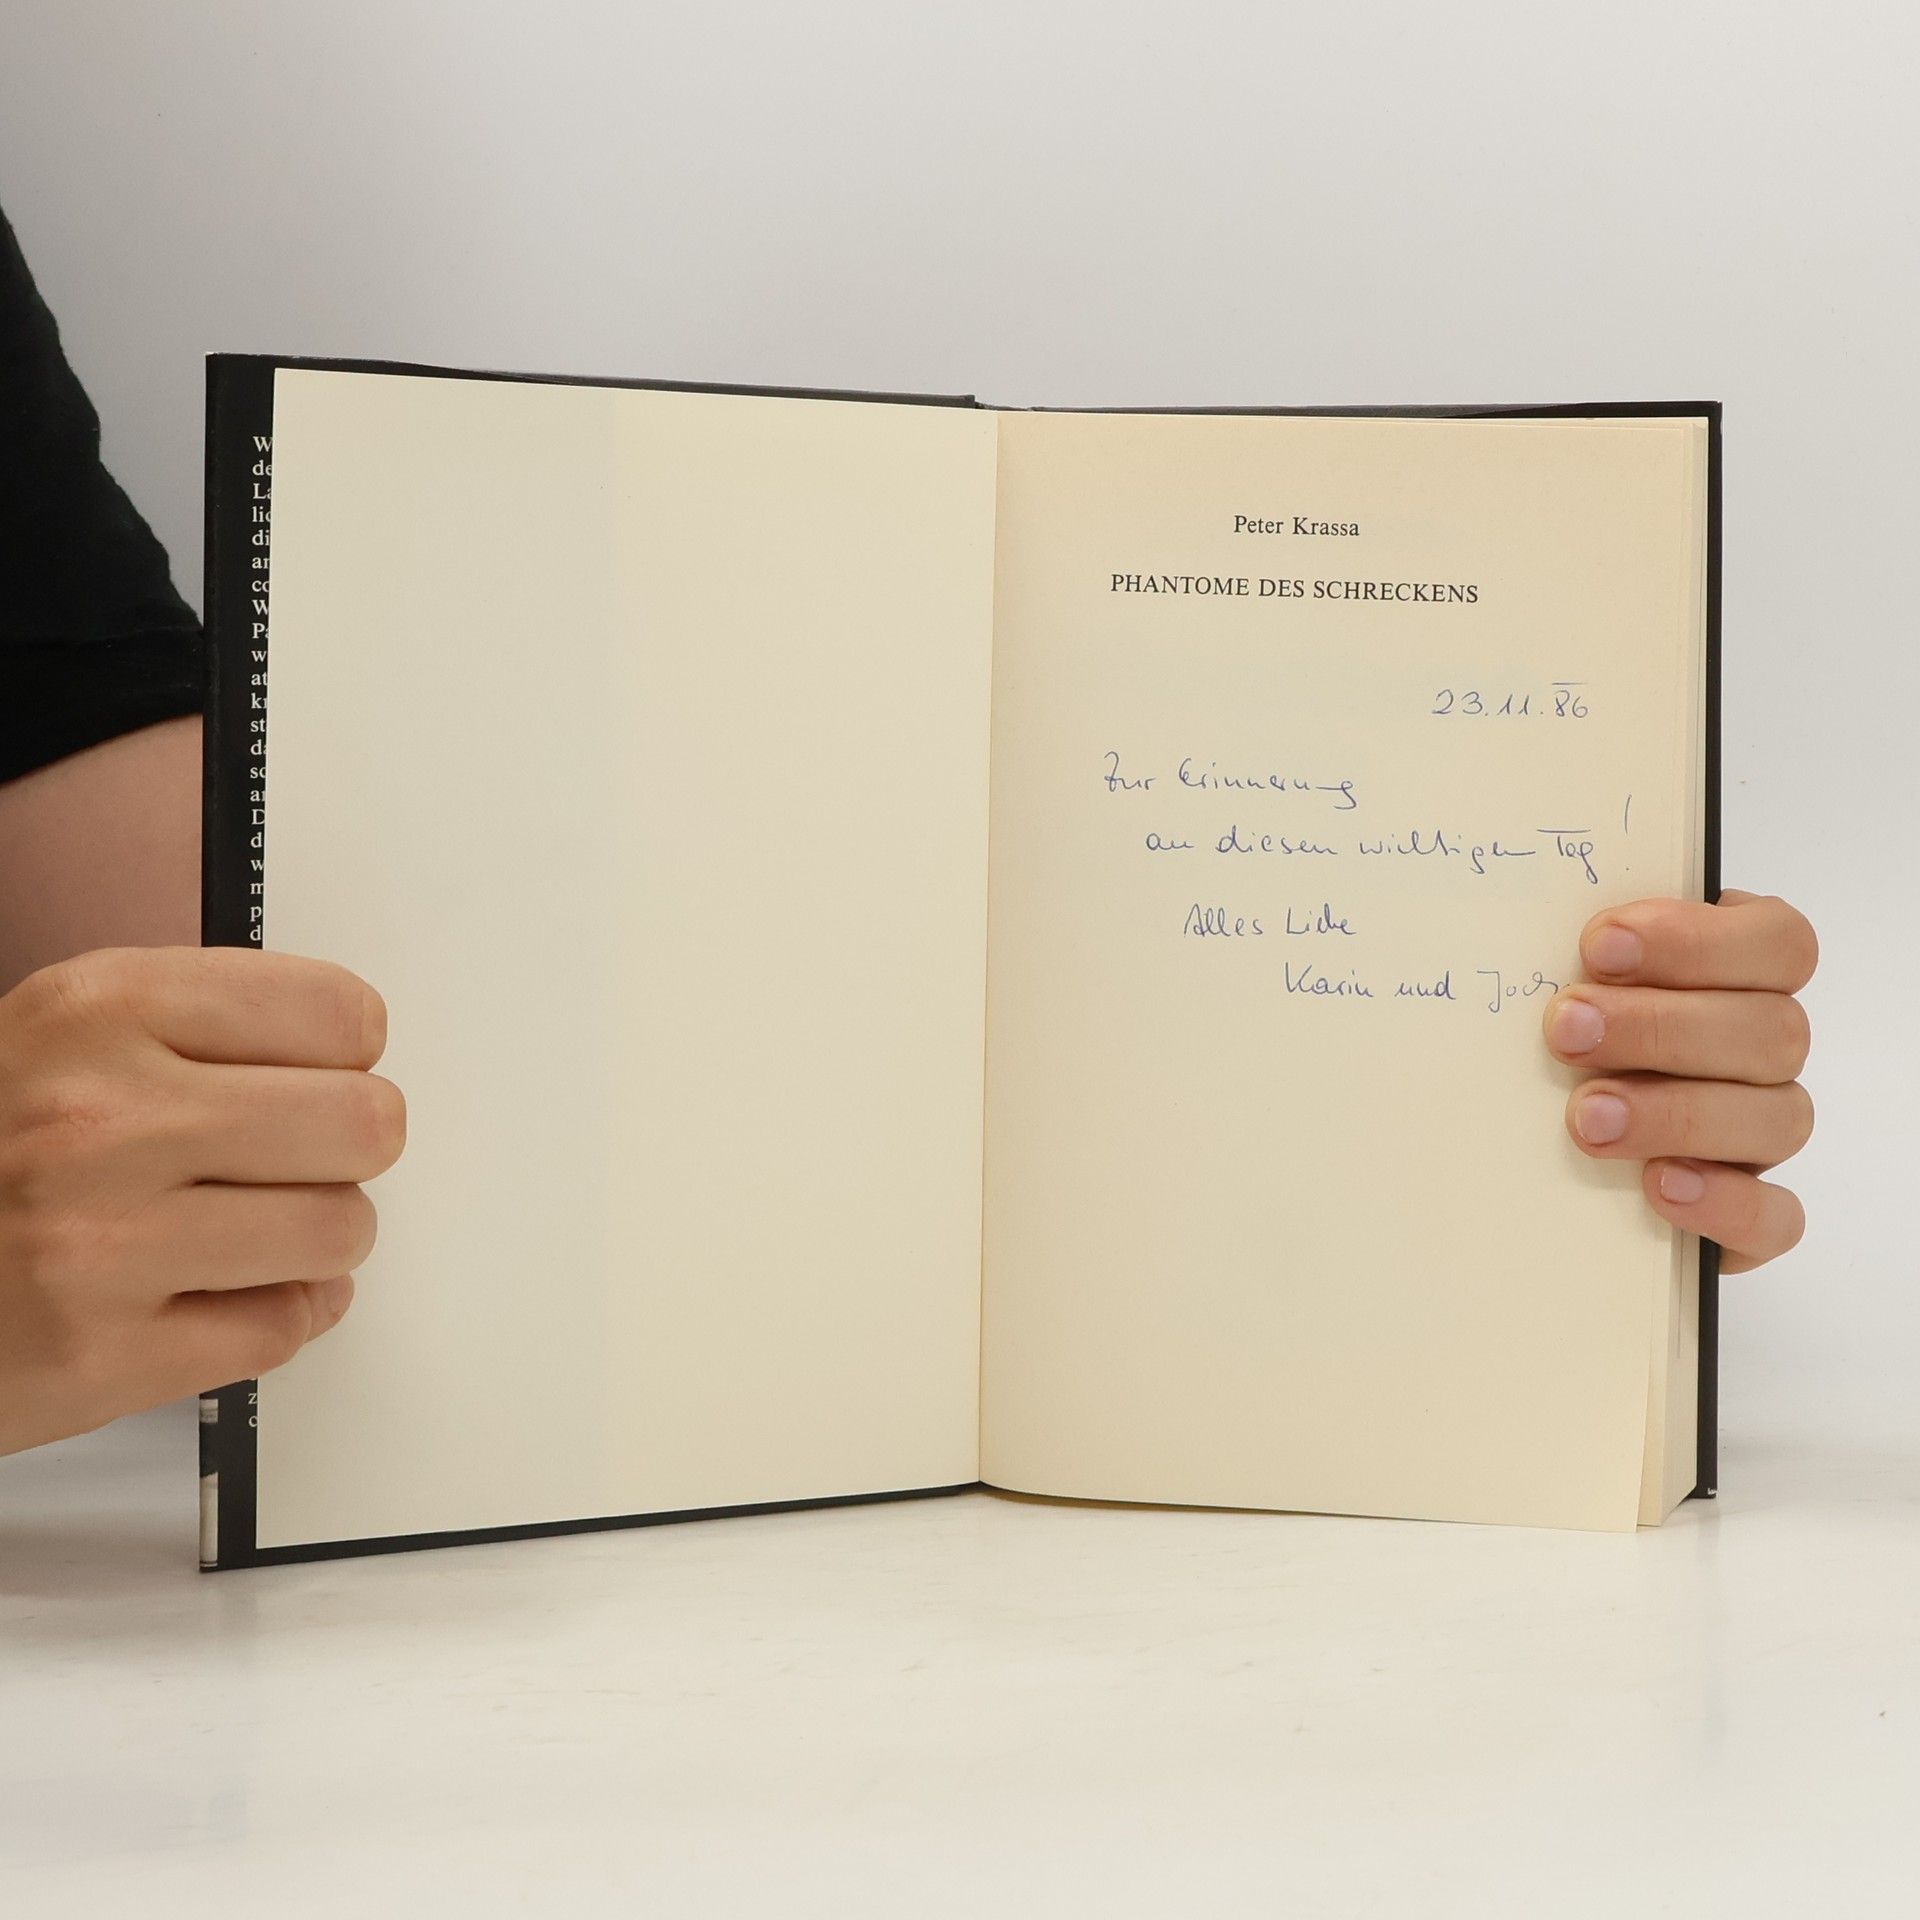 W
de
La
lic
di
ar
co
W
Pa
w
at
kr
st
da
sc
ar
D
d
w
m
p
d
z
c
Peter Krassa
PHANTOME DES SCHRECKENS
23.11.86
Zur Erinnerung
an diesen wichtigen Tag!
Alles Liebe
Karin und